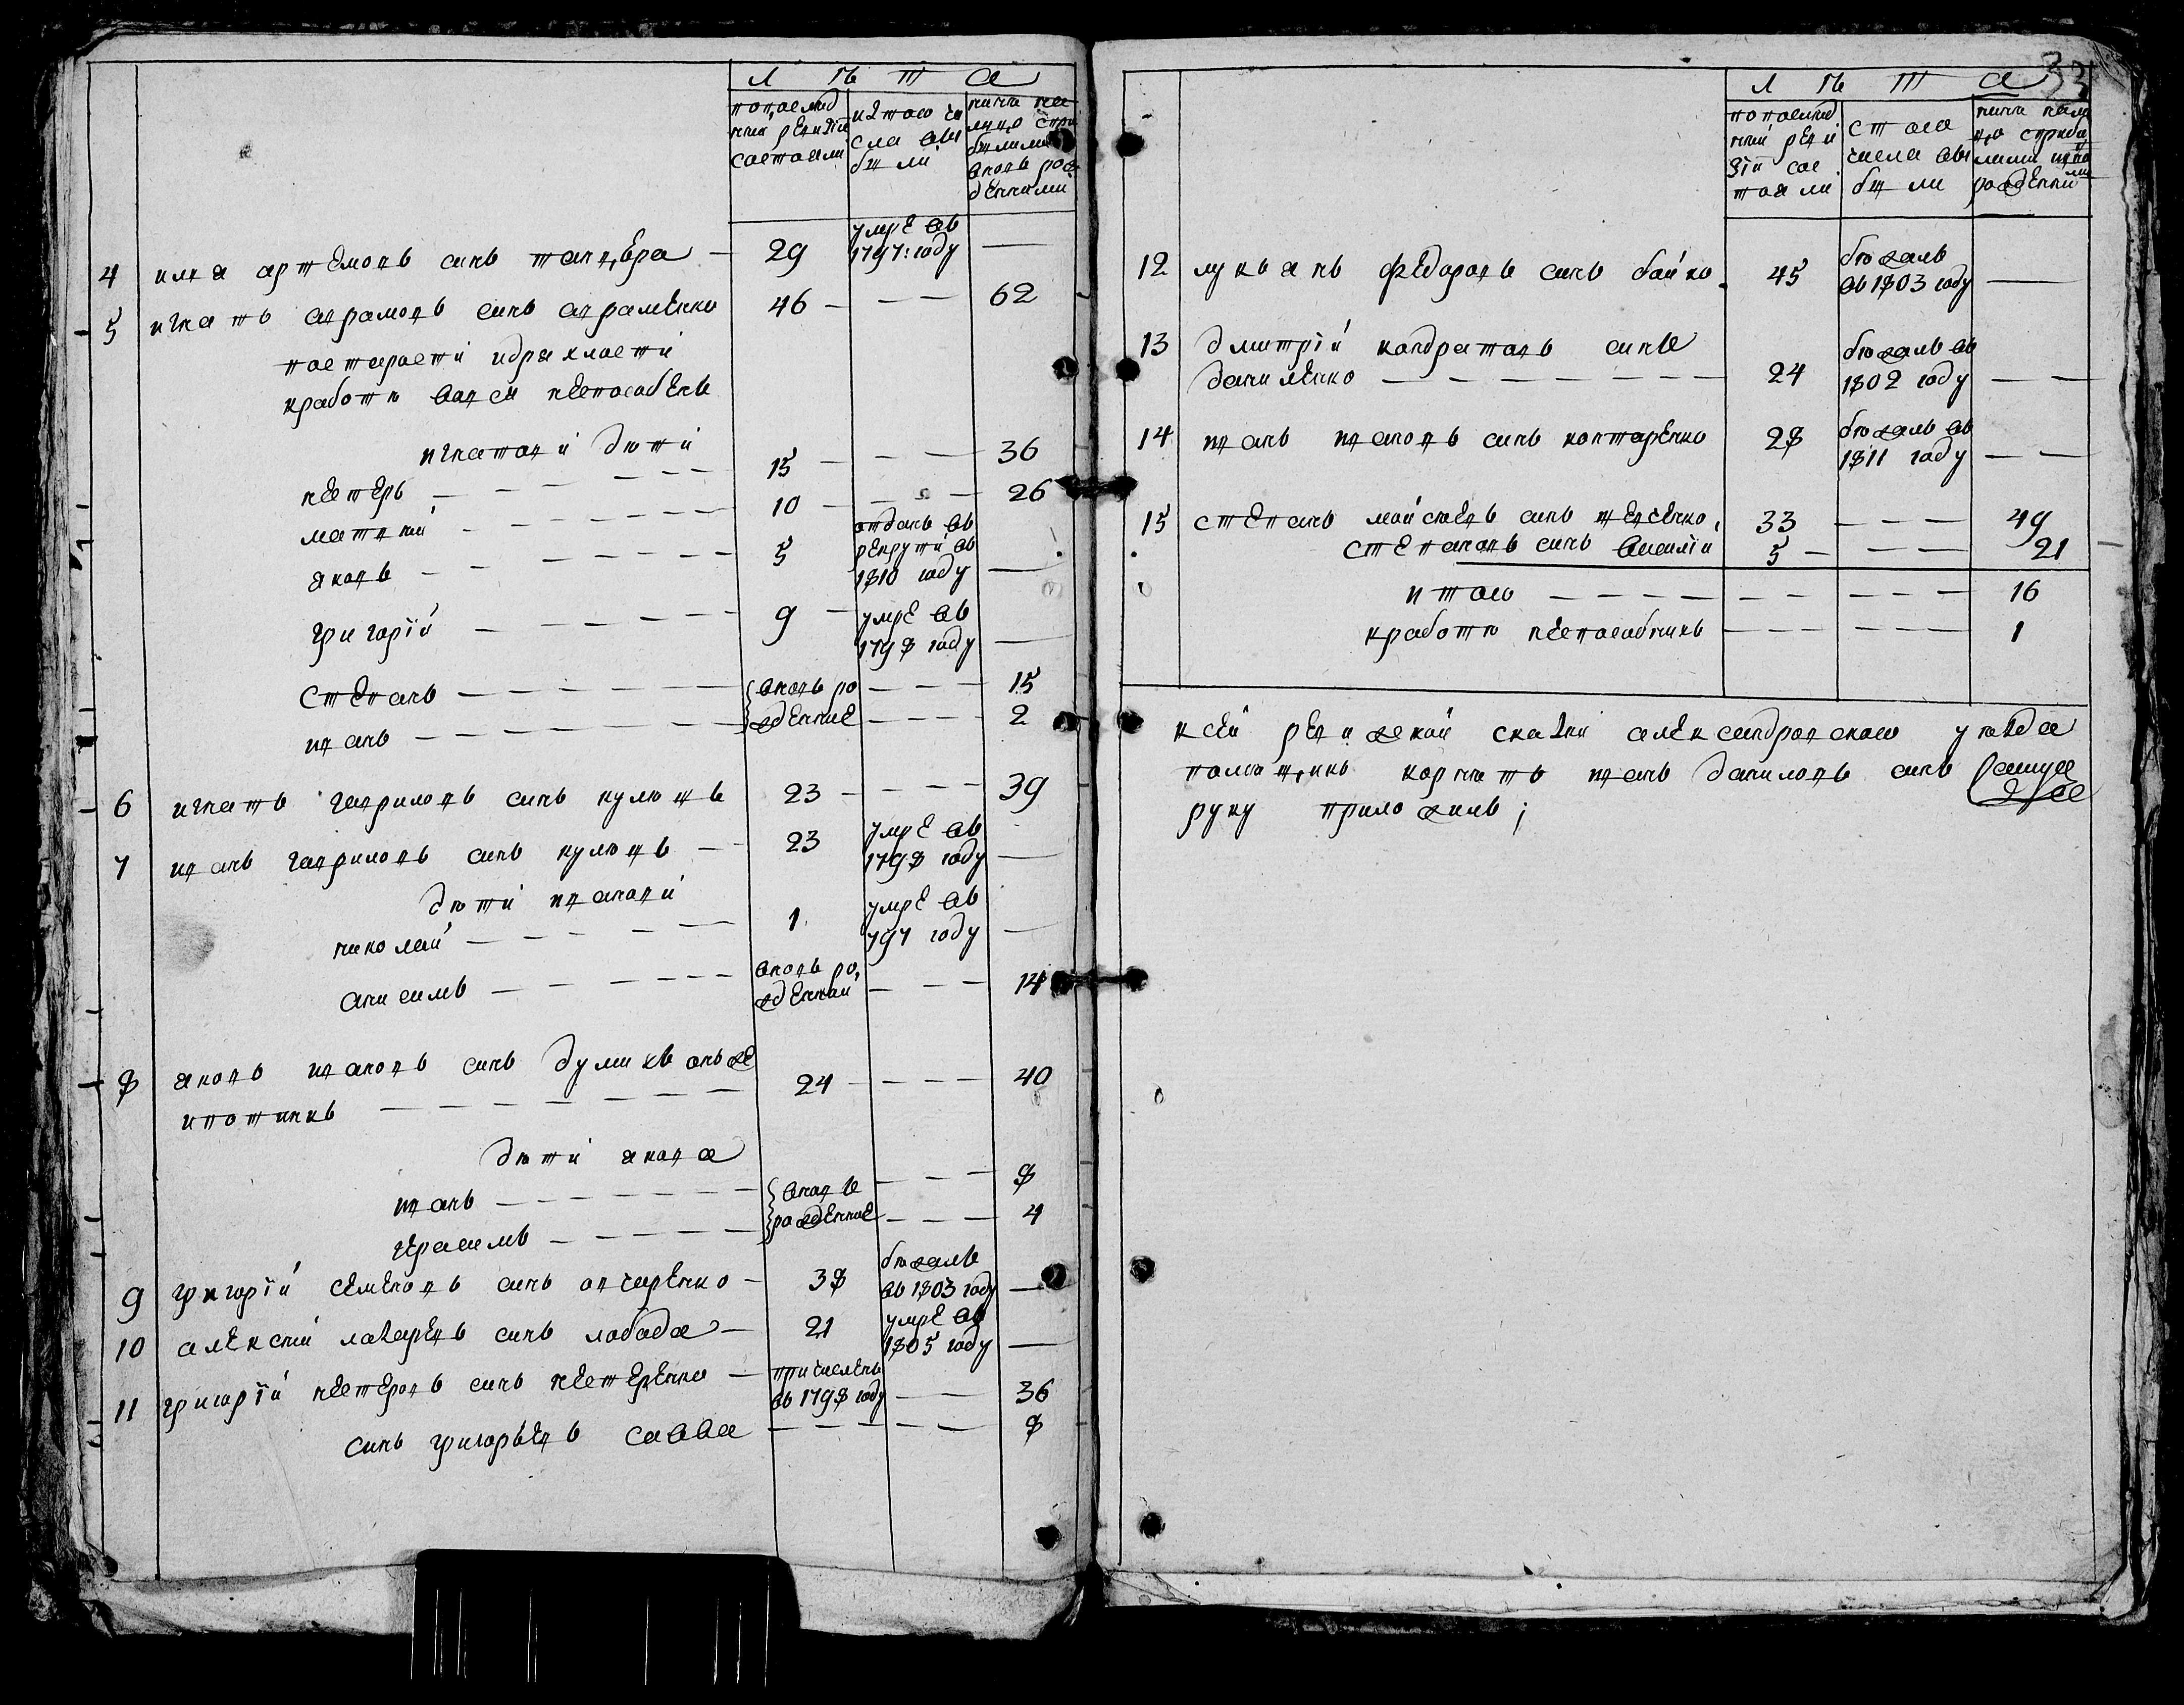 Л ѣ т а
попослѣд
ней ревизіи
состояли
изтого чи
сла вы
были
ныне на
лицо стри
былими
вновь рож
денними
4 илья артемовъ синъ
29
умре въ
1797: году
5 игнатъ аврамовъ синъ авраменко
46 62
постарости идряхлости
кработѣ вовси неспособенъ
игнатови дѣти
нестеръ 15 36
матвѣй 10 26
яковъ 5
отданъ въ
рекрути въ
1810 году
григорій 9
умре въ
1798 году
степанъ
вновь ро 15
иванъ
жденние 2
6 игнатъ гавриловъ синъ 23 39
7 иванъ гавриловъ синъ 23
умре въ
1798 году
дѣти иванови
николай 1
умре въ
797 году
анисимъ
вновь ро,
жденный 14
8 яковъ ивановъ синъ онъже
24 40
дѣти якова
иванъ
вновъ 8
герасимъ
рожденние 4
9 григорій семеновъ синъ овчаренко 38
бѣжалъ
въ 1803 году
10 алексѣй лазаревъ синъ лобода 21
умре въ
1805 году
11 григорій нестеровъ синъ нестеренко
причисленъ
въ 1798 году 36
синъ григорьевъ савва 8
33
Л ѣ т а
попослѣд
ней реви
зіи сос
тояли
стого
числа вы
были
ныне нали
цо стриби
лими
рожденни
ми
12 лукьянъ федоровъ синъ бойко 45
бѣжалъ
въ 1803 году
13 дмитрій кондратовъ синъ
даниленко 24
бѣжалъ въ
1802 году
14 иванъ ивановъ синъ контаренко 28
бѣжалъ въ
1811 году
15 степанъ мойсѣевъ синъ 33 49
степановъ синъ василій 5 21
итого 16
кработѣ неспособнихъ 1
ксей ревижской сказки александровского уѣзда
помѣщикъ корнетъ иванъ даниловъ синъ
руку приложилъ;